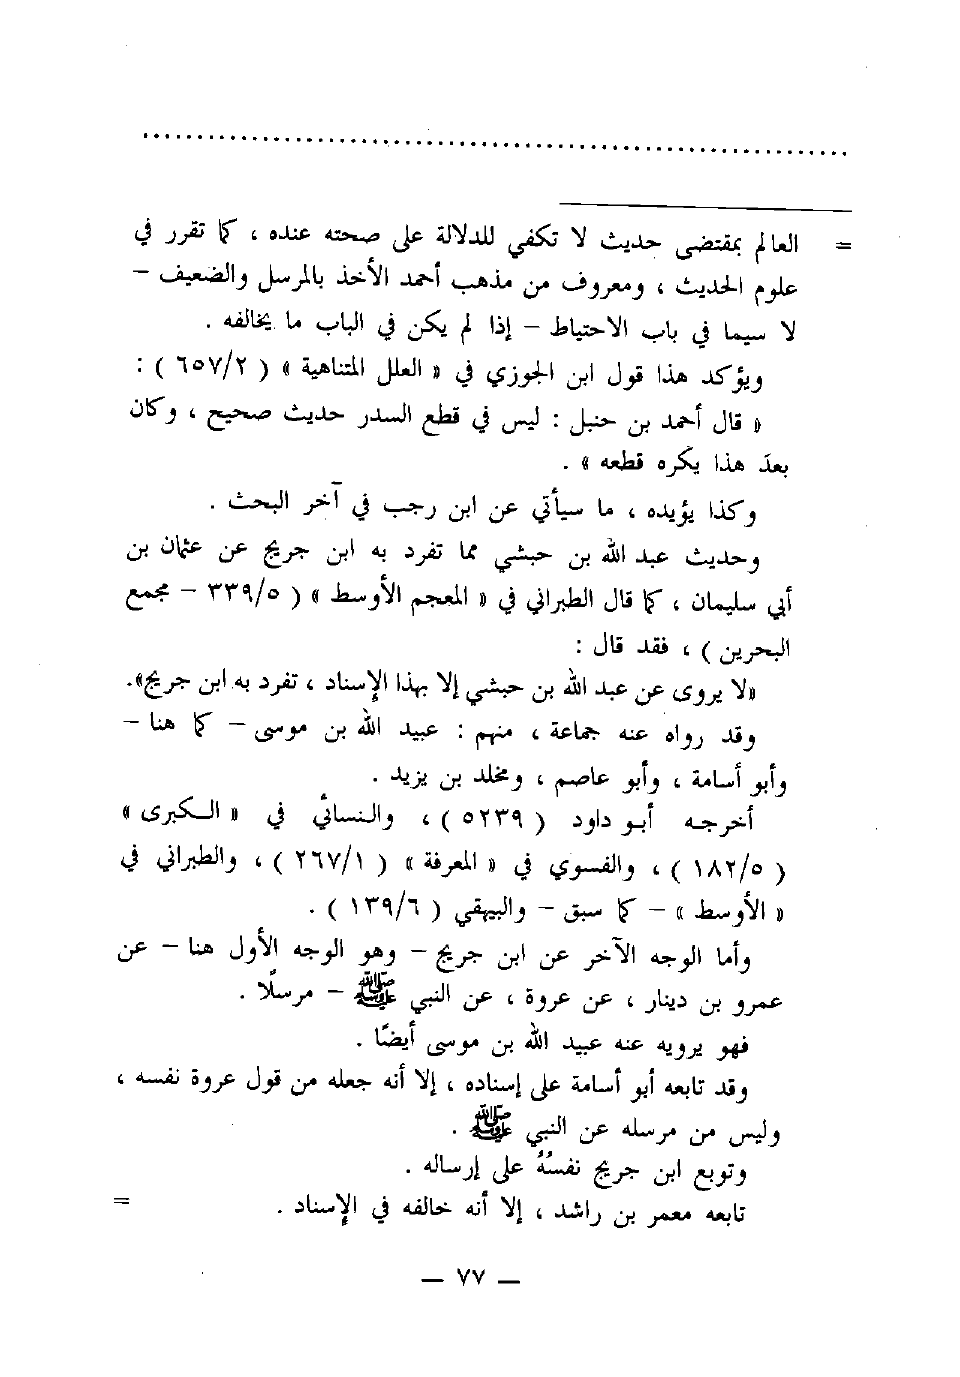 ..................................................................
= العالم بمقتضى حديث لا تكفي للدلالة على صحته عنده ، كما تقرر في
علوم الحديث ، ومعروف من مذهب أحمد الأخذ بالمرسل والضعيف –
لا سيما في باب الاحتياط – إذا لم يكن في الباب ما يخالفه .
ويؤكد هذا قول ابن الجوزي في « العلل المتناهية » ( ٦٥٧/٢ ) :
« قال أحمد بن حنبل : ليس في قطع السدر حديث صحيح ، وكان
بعدَ هذا يكره قطعه » .
وكذا يؤيده ، ما سيأتي عن ابن رجب في آخر البحث .
وحديث عبد الله بن حبشي مما تفرد به ابن جريج عن عثمان بن
أبي سليمان ، كما قال الطبراني في « المعجم الأوسط » ( ٣٣٩/٥ – مجمع
البحرين ) ، فقد قال :
«لا يروى عن عبد الله بن حبشي إلا بهذا الإسناد ، تفرد به ابن جريج».
وقد رواه عنه جماعة ، منهم : عبيد الله بن موسى – كما هنا –
وأبو أسامة ، وأبو عاصم ، ومخلد بن يزيد .
أخرجه أبو داود ( ٥٢٣٩ ) ، والنسائي في « الكبرى »
( ١٨٢/٥ ) ، والفسوي في « المعرفة » ( ٢٦٧/١ ) ، والطبراني في
« الأوسط » – كما سبق – والبيهقي ( ١٣٩/٦ ) .
وأما الوجه الآخر عن ابن جريج – وهو الوجه الأول هنا – عن
عمرو بن دينار ، عن عروة ، عن النبي ﷺ – مرسلًا .
فهو يرويه عنه عبيد الله بن موسى أيضًا .
وقد تابعه أبو أسامة على إسناده ، إلا أنه جعله من قول عروة نفسه ،
وليس من مرسله عن النبي ﷺ .
وتوبع ابن جريج نفسُهُ على إرساله .
تابعه معمر بن راشد ، إلا أنه خالفه في الإسناد . =
– ٧٧ –